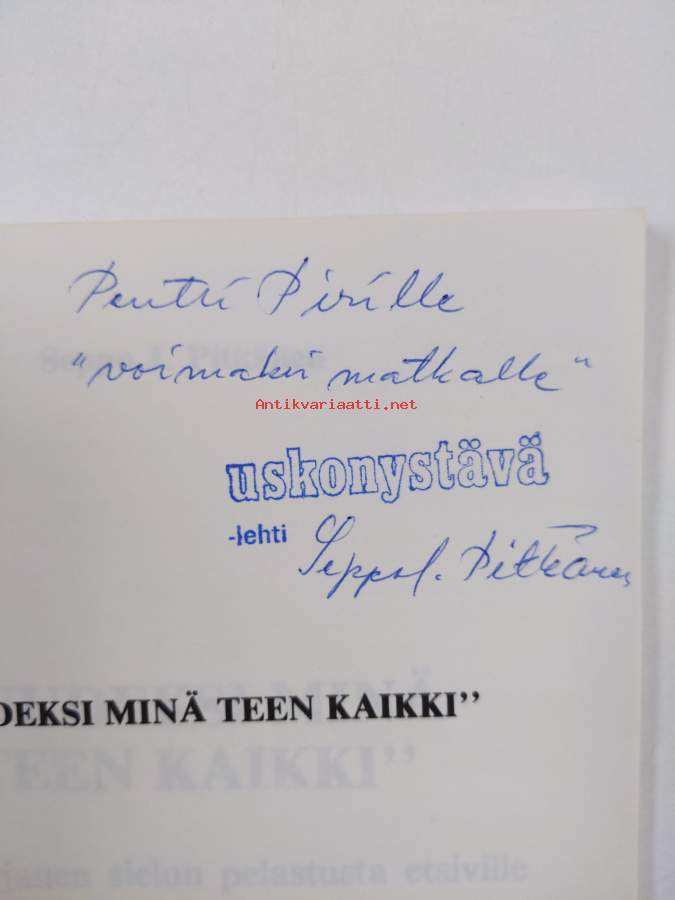 Pentti Pirille
"voimaksi matkalle"
Antikvariaatti.net
uskonystävä
-lehti
Seppo J. Pitkänen
DEKSI MINÄ TEEN KAIKKI”
Seppo J. Pitkänen
MINÄ
TEEN KAIKKI”
janen sielun pelastusta etsiville